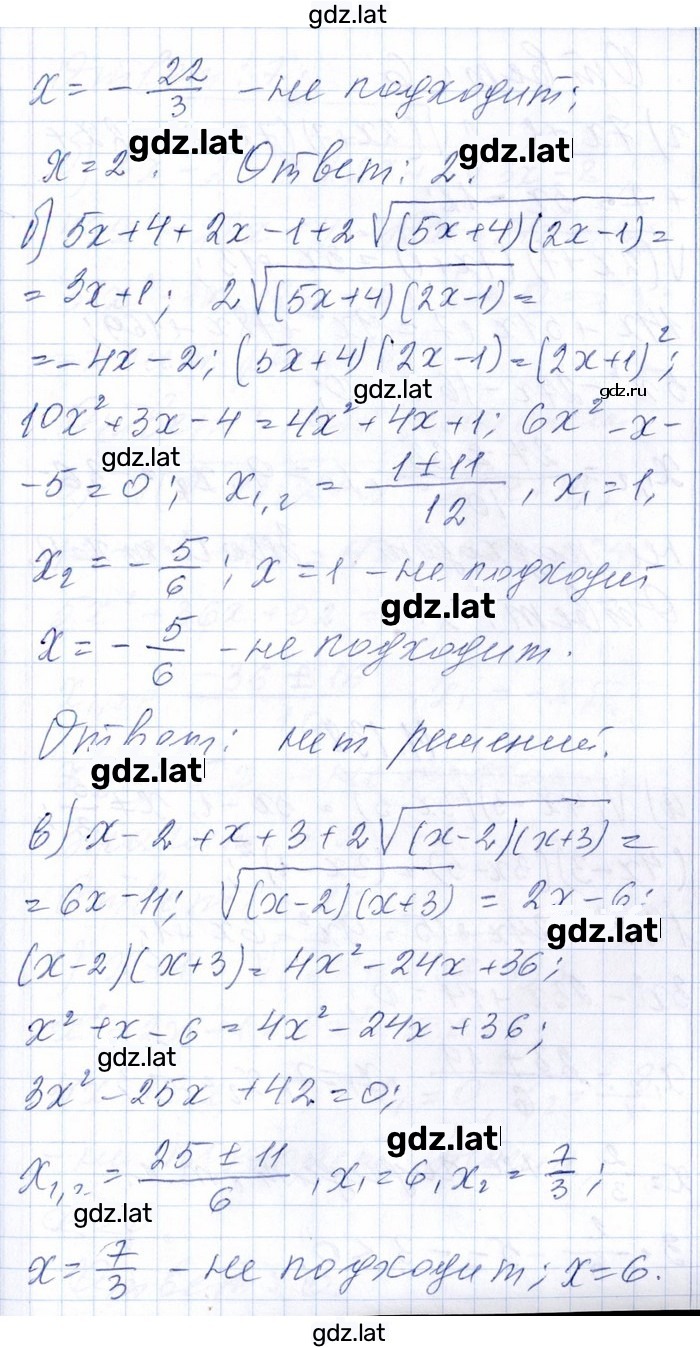 gdz.lat
x = - 22/3 - не подходит;
gdz.lat gdz.lat
x = 2. Ответ: 2.
б) 5x+4+2x-1+2√((5x+4)(2x-1)) =
= 3x+1; 2√((5x+4)(2x-1)) =
= -4x-2; (5x+4)(2x-1) = (2x+1)²;
gdz.lat gdz.ru
10x²+3x-4 = 4x²+4x+1; 6x²-x-
gdz.lat
-5=0; x₁,₂ = (1±11)/12, x₁=1,
x₂ = -5/6; x=1 - не подходит
gdz.lat
x = -5/6 - не подходит.
Ответ: нет решений.
gdz.lat
в) x-2+x+3+2√((x-2)(x+3)) =
= 6x-11; √((x-2)(x+3)) = 2x-6;
gdz.lat
(x-2)(x+3) = 4x²-24x+36;
x²+x-6 = 4x²-24x+36;
gdz.lat
3x²-25x+42=0;
gdz.lat
x₁,₂ = (25±11)/6, x₁=6, x₂=7/3;
gdz.lat
x = 7/3 - не подходит; x=6.
gdz.lat